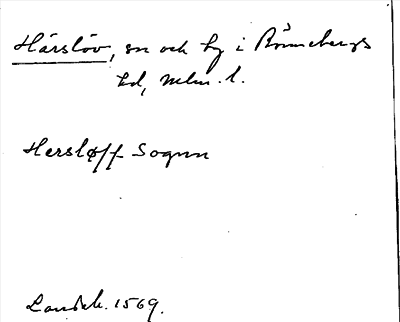 Härslöv, sn och by i Rönnebergs
hd, Mlm. l.
Hersløff Sognn
Landeb. 1569.